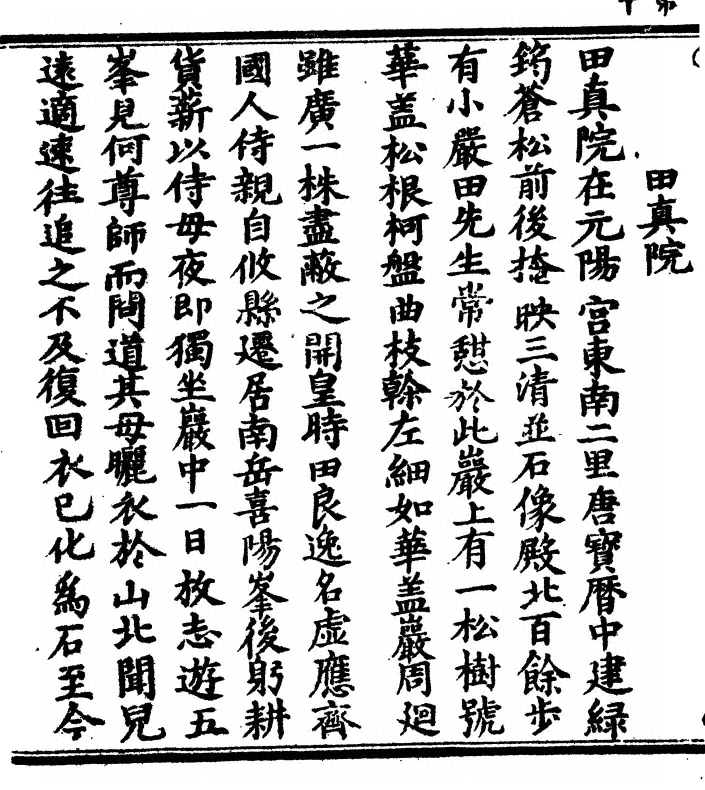 田真院
田真院在元陽宮東南二里唐寶曆中建緑
筠蒼松前後掩映三清並石像殿北百餘步
有小嚴田先生常憇於此巖上有一松樹號
華盖松根柯盤曲枝榦左細如華盖巖周廻
雖廣一株盡蔽之開皇時田良逸名虚應齊
國人侍親自攸縣遷居南岳喜陽峯後躬耕
貨薪以侍母夜即獨坐巖中一日放志遊五
峯見何尊師而問道其母曬衣於山北聞兒
遠適速往追之不及復回衣已化爲石至今